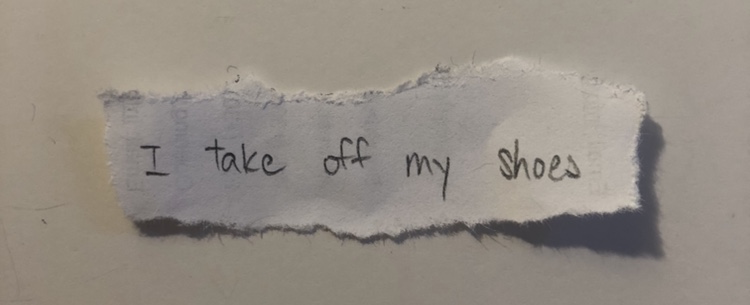 I take off my shoes